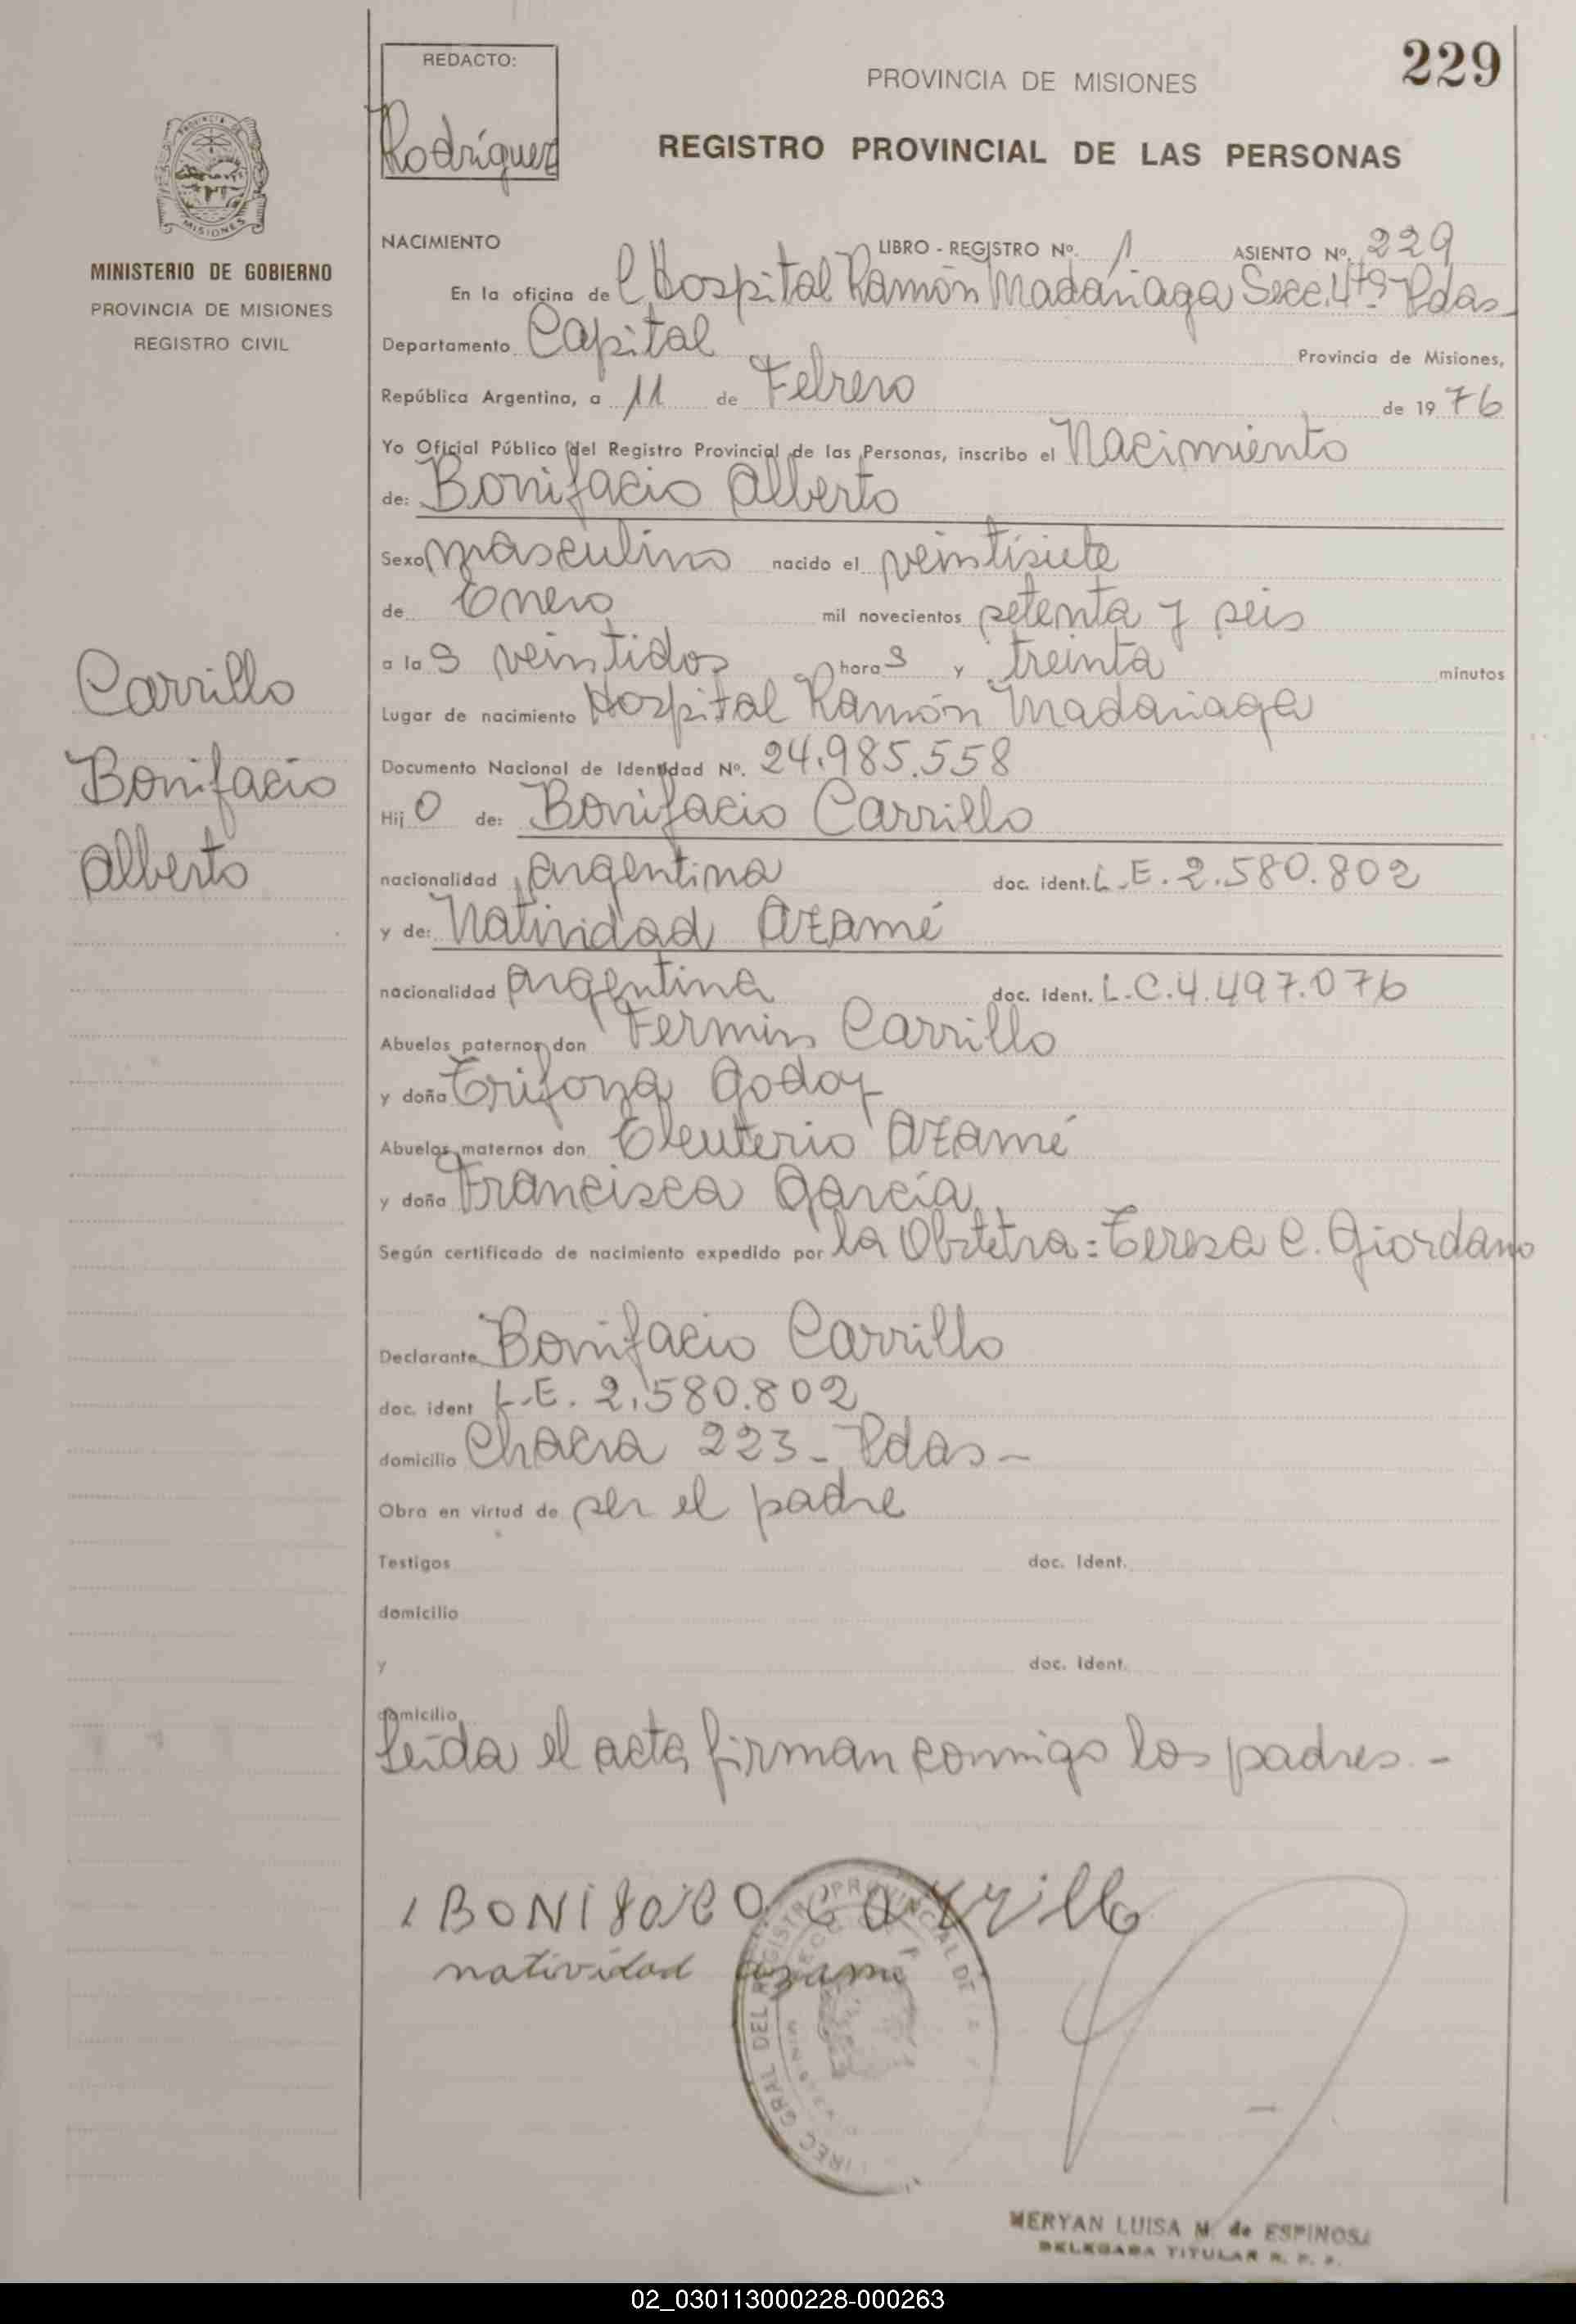 229
REDACTO:
Rodríguez
PROVINCIA DE MISIONES
REGISTRO PROVINCIAL DE LAS PERSONAS
PROVINCIA DE
MISIONES
MINISTERIO DE GOBIERNO
PROVINCIA DE MISIONES
REGISTRO CIVIL
NACIMIENTO LIBRO - REGISTRO Nº 1 ASIENTO Nº 229
En la oficina de l Hospital Ramón Madariaga Secc. 4ta Pdas
Departamento Capital Provincia de Misiones,
República Argentina, a 11 de Febrero de 1976
Yo Oficial Público del Registro Provincial de las Personas, inscribo el Nacimiento
de: Bonifacio Alberto
Sexo masculino nacido el veintisiete
de Enero mil novecientos setenta y seis
a las veintidos horas y treinta minutos
Lugar de nacimiento Hospital Ramón Madariaga
Documento Nacional de Identidad Nº. 24.985.558
Hijo de: Bonifacio Carrillo
nacionalidad argentina doc. ident. L.E. 2.580.802
y de: Natividad Azamé
nacionalidad argentina doc. ident. L.C. 4.497.076
Abuelos paternos don Fermin Carrillo
y doña Trifona Godoy
Abuelos maternos don Eleuterio Azamé
y doña Francisca García
Según certificado de nacimiento expedido por la Obstetra: Teresa C. Giordano
Declarante Bonifacio Carrillo
doc. ident L.E. 2.580.802
domicilio Chacra 223 - Pdas -
Obra en virtud de ser el padre
Testigos doc. Ident.
domicilio
y doc. Ident.
domicilio
Leída el acta firman conmigo los padres. -
Carrillo
Bonifacio
Alberto
BONIfacio Carrillo
natividad azame
DIREC GRAL DEL REGISTRO PROVINCIAL DE
MERYAN LUISA M. de ESPINOSA
DELEGADA TITULAR R. P. P.
02_030113000228-000263